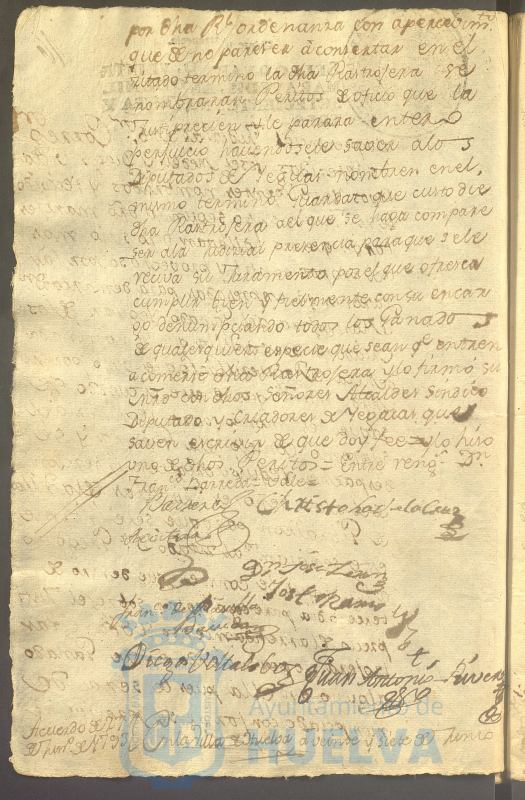 por dha Rl ordenanza con apercevimto
que de no parecer a consertar en el
sitado termino la dha Rastrojera se
nombraran Peritos de oficio que la
Justiprecien y le parara entero
perjuicio haciendosele saver alos
Diputados de Yeguas nombren en el
mismo termino Guarda que custodie
dha Rastrojera ael que se haga compare
ser ala Judicial presencia para que se le
reciva su Juramento por el que ofresca
cumplir bien y fielmente con su encar
go denunpciando todos los Ganados
de qualesquiera especie que sean qe entren
a comerse dha Rastrojera y lo firmó su
mrd con dhos Señores Alcaldes Sindico
Diputado y Criadores de Yeguas que
saven escrivir de que doy fee = y lo hiso
uno de dhos Peritos = Entre rengs Dn
Franco Barreda = Vale =
Barreda
Christoval de la Cruz
Dn Jose
Jose Ramos
Diego
Juan Antonio
Acuerdo de
de Jun. de 1793
En la Villa de Huelva a veinte y siete de Junio
Ayuntamiento de
HUELVA